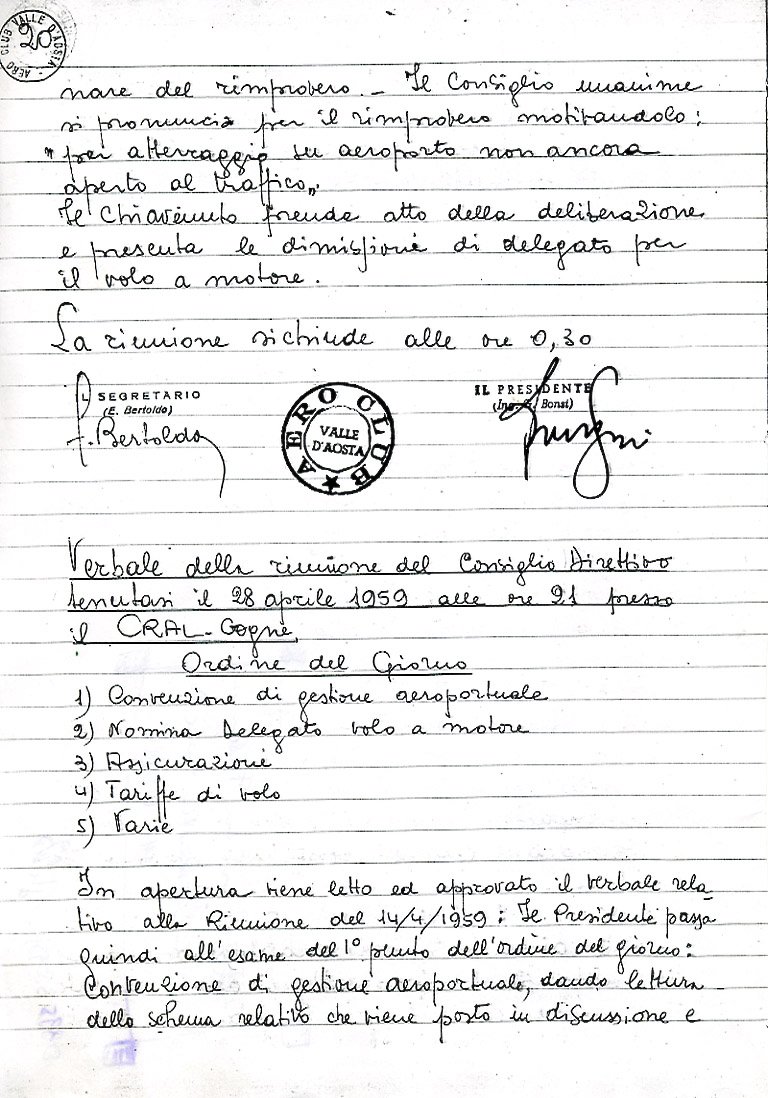 AERO CLUB VALLE D'AOSTA
20
nare del rimprovero. - Il Consiglio unanime
si pronuncia per il rimprovero motivandolo:
"per atterraggio su aeroporto non ancora
aperto al traffico".
Il Chiavenuto prende atto della deliberazione
e presenta le dimissioni di delegato per
il volo a motore.
La riunione si chiude alle ore 0,30
IL SEGRETARIO
(E. Bertoldo)
Bertoldo
AERO CLUB
VALLE
D'AOSTA
IL PRESIDENTE
(Ing. Bonsi)
Verbale della riunione del Consiglio Direttivo
tenutasi il 28 aprile 1959 alle ore 21 presso
il CRAL-Cogne
Ordine del Giorno
1) Convenzione di gestione aeroportuale
2) Nomina Delegato volo a motore
3) Assicurazione
4) Tariffe di volo
5) Varie
In apertura viene letto ed approvato il verbale rela_
tivo alla Riunione del 14/4/1959: Il Presidente passa
quindi all'esame del 1° punto dell'ordine del giorno:
Convenzione di gestione aeroportuale, dando lettura
dello schema relativo che viene posto in discussione e